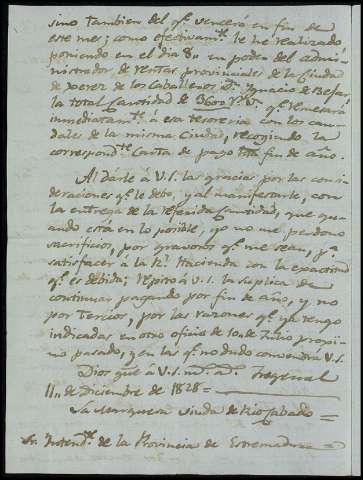 sino tambien del qᵉ vencerá en fin de
este mes; como efectivamᵗᵉ lo he realizado
poniendo en el dia 8,, en poder del admi-
nistrador de rentas provinciales de la Ciudad
de Xerez de los Caballeros Dⁿ Ignacio de
la total Cantidad de 9600 rˢ vⁿ qᵉ remesará
inmediatamᵗᵉ á esa tesoreria con los cau-
dales de la misma Ciudad, recogiendo la
correspondᵗᵉ Carta de pago fin de año.
Al darle á V.S. las gracias por las consi-
deraciones qᵉ le debo, y al manifestarle, con
la entrega de la referida Cantidad, que qu-
ando está en lo posible, yo no me perdono
sacrificios, por gravosos qᵉ me sean, pᵃ
satisfacer á la Rˡ Hacienda con la exactitud
qᵉ es debida; repito á V.S. la suplica de
continuar pagando por fin de año, y no
por tercios, por las razones qᵉ ya tengo
indicadas en otro oficio de 10 de Julio propi-
mo pasado, y en las qᵉ no dudo convendrá V.S.
Dios gᵘᵉ á V.S. mˢ aˢ Fregenal
11,, de Diciembre de 1828=
La Marquesa viuda de Riocabado=
Sr Intendᵗᵉ de la Provincia de Extremadura